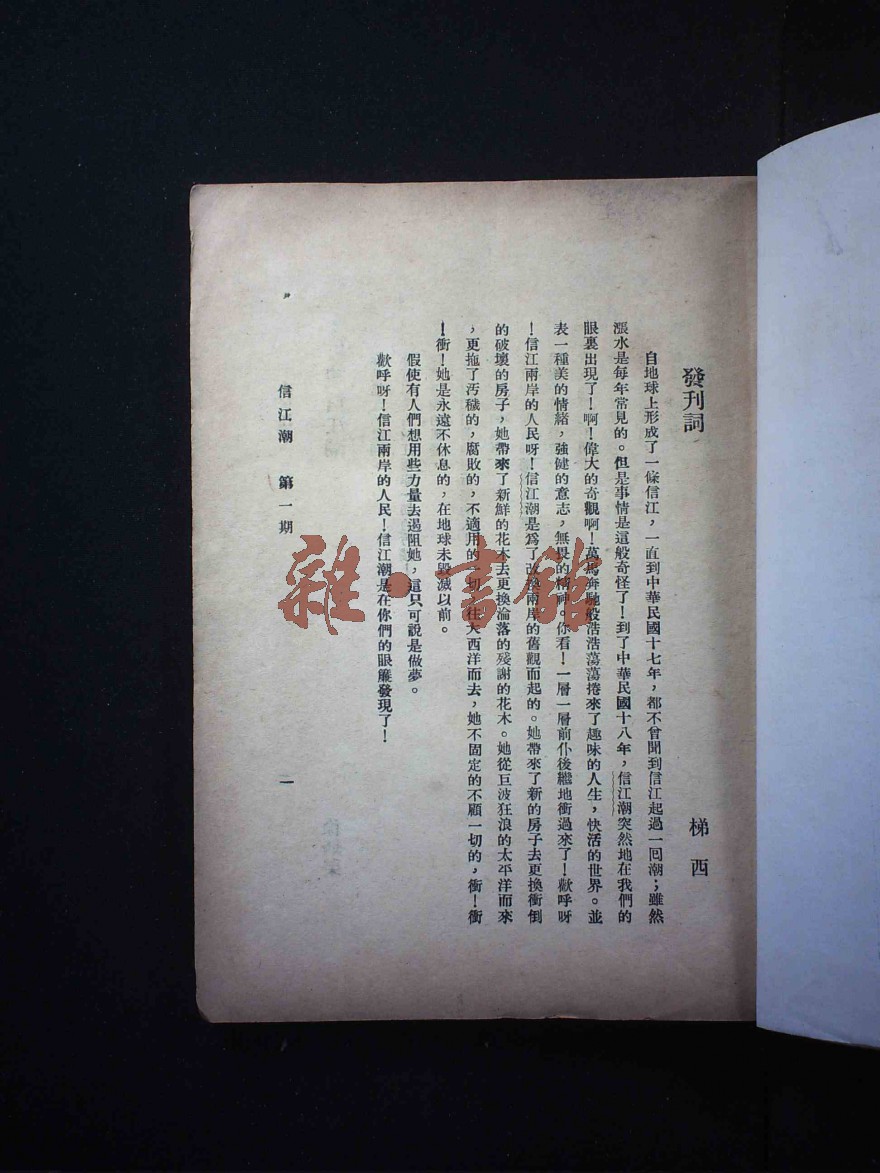 發刊詞
梯西
自地球上形成了一條信江，一直到中華民國十七年，都不曾聞到信江起過一回潮；雖然
漲水是每年常見的。但是事情是這般奇怪了！到了中華民國十八年，信江潮突然地在我們的
眼裏出現了！啊！偉大的奇觀啊！萬馬奔馳般浩浩蕩蕩捲來了趣味的人生，快活的世界。並
表一種美的情緒，強健的意志，無畏的精神。你看！一層一層前仆後繼地衝過來了！歡呼呀
！信江兩岸的人民呀！信江潮是爲了改換兩岸的舊觀而起的。她帶來了新的房子去更換衝倒
的破壞的房子，她帶來了新鮮的花木去更換淪落的殘謝的花木。她從巨波狂浪的太平洋而來
，更拖了汚穢的，腐敗的，不適用的一切往大西洋而去，她不固定的不顧一切的，衝！衝
！衝！她是永遠不休息的，在地球未毀滅以前。
假使有人們想用些力量去遏阻她，這只可說是做夢。
歡呼呀！信江兩岸的人民！信江潮是在你們的眼簾發現了！
信江潮 第一期
一
雜·書館